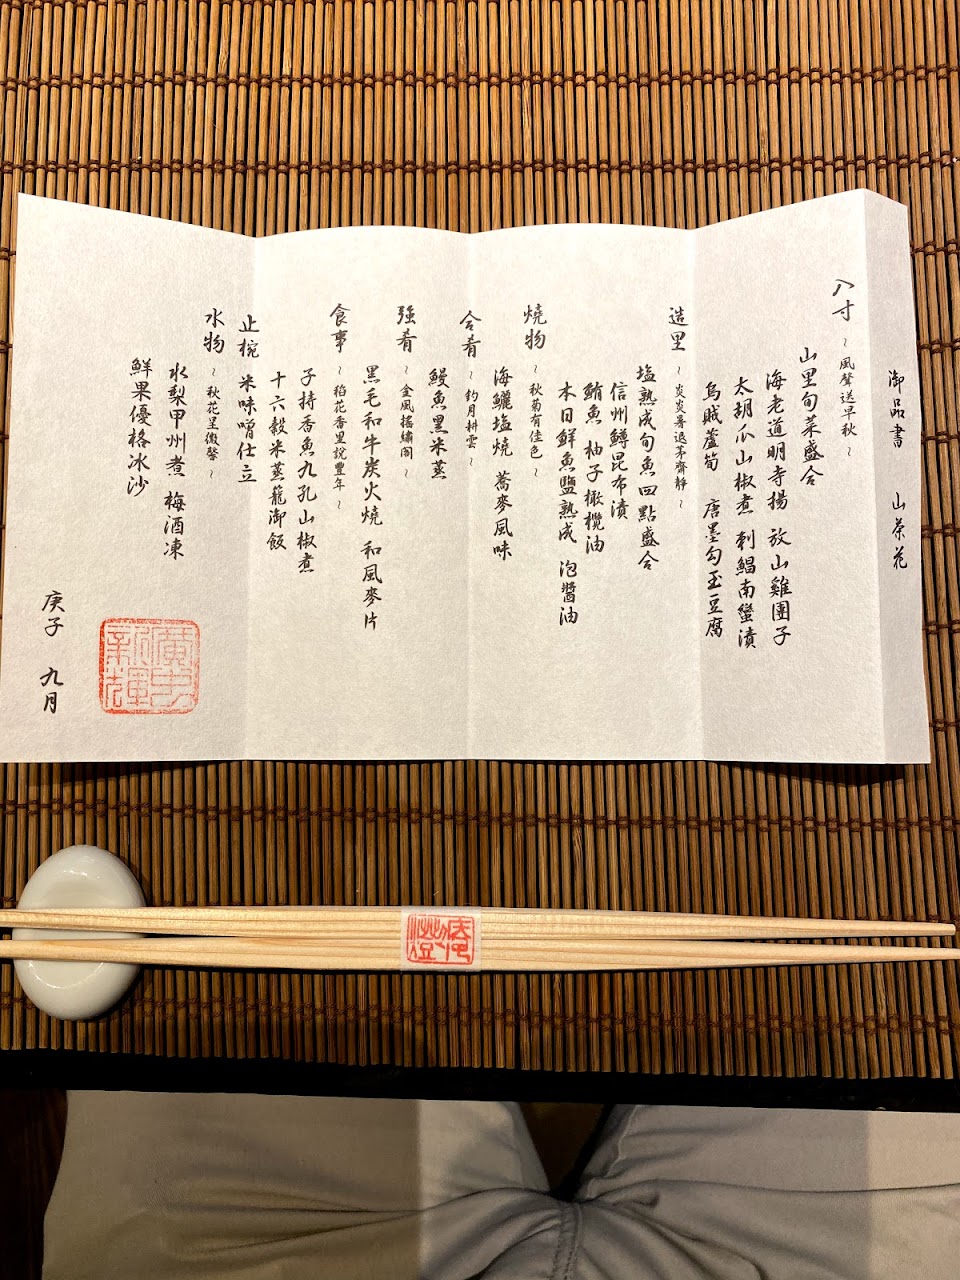 御品書 山茶花
八寸 ~風聲送早秋~
山里旬菜盛合
海老道明寺揚 放山雞團子
太胡瓜山椒煮 刺鯧南蠻漬
烏賊蘆筍 唐墨勾玉豆腐
造里 ~炎炎暑退茅齋靜~
塩熟成旬魚四點盛合
信州鱒昆布漬
鮪魚 柚子橄欖油
本日鮮魚鹽熟成 泡醬油
燒物 ~秋菊有佳色~
海鱺塩燒 蕎麥風味
合肴 ~釣月耕雲~
鰻魚黑米蒸
強肴 ~金風搖繡閣~
黑毛和牛炭火燒 和風麥片
食事 ~稻花香里說豐年~
子持香魚九孔山椒煮
十六穀米蒸籠御飯
止椀 米味噌仕立
水物 ~秋花呈微馨~
水梨甲州煮 梅酒凍
鮮果優格冰沙
庚子 九月